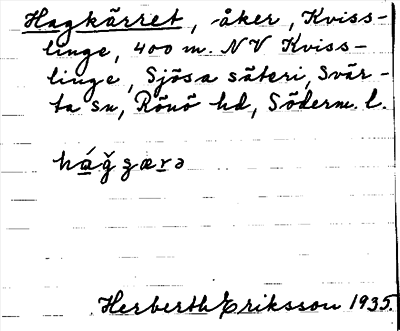 Hagkärret, åker, Kviss-
linge, 400 m. NV Kviss-
linge, Sjösa säteri, Svär-
ta sn, Rönö hd, Söderm. l.
háğgærə
Herberth Eriksson 1935.